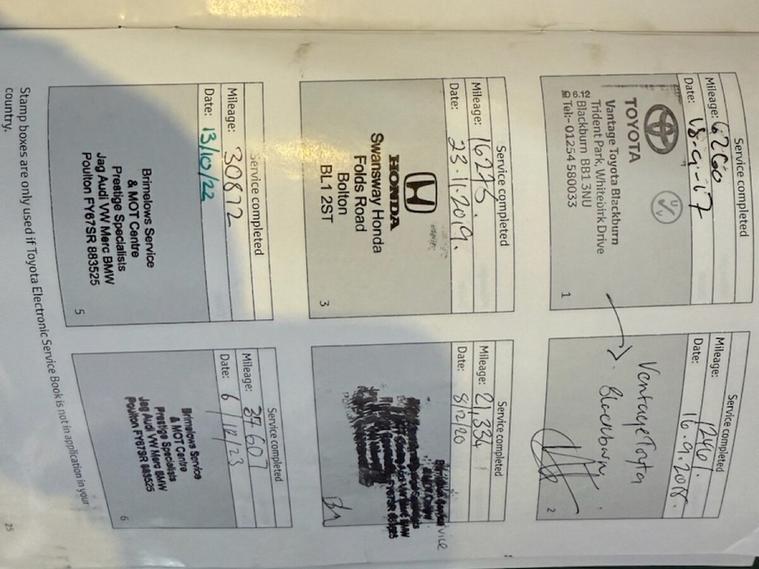 Service completed
Mileage: 6260
Date: 18-9-17
TOYOTA
Vantage Toyota Blackburn
Trident Park, Whitebirk Drive
Blackburn BB1 3NU
Tel:- 01254 580033
1
Service completed
Mileage: 12461.
Date: 16.9.2018.
Vantage Toyta
Blackburn
2
Service completed
Mileage: 16273.
Date: 23-11-2019.
HONDA
Swansway Honda
Folds Road
Bolton
BL1 2ST
3
Service completed
Mileage: 21,334
Date: 8/12/20
Service completed
Mileage: 30872
Date: 13/10/22
Brimelows Service
& MOT Centre
Prestige Specialists
Jag Audi VW Merc BMW
Poulton FY67SR 883525
5
Service completed
Mileage: 37607
Date: 6/12/23
Brimelows Service
& MOT Centre
Prestige Specialists
Jag Audi VW Merc BMW
Poulton FY67SR 883525
6
Stamp boxes are only used if Toyota Electronic Service Book is not in application in your
country.
25